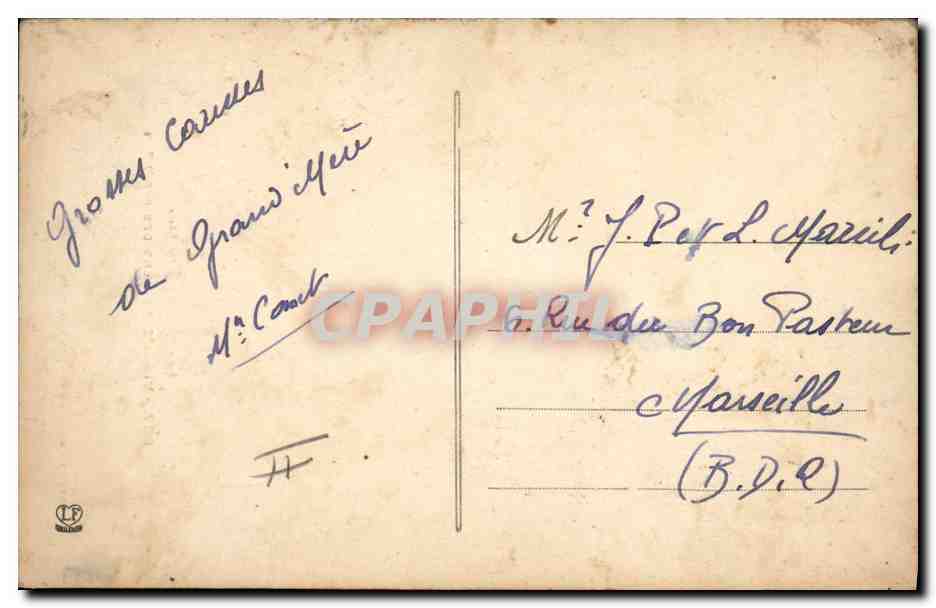 Grosses Caresses
de Grand'Mère
Mn
II
LF
CPAPHIL
Mr J. P et L.
6. Rue du Bon Pasteur
Marseille
(B.D.R)